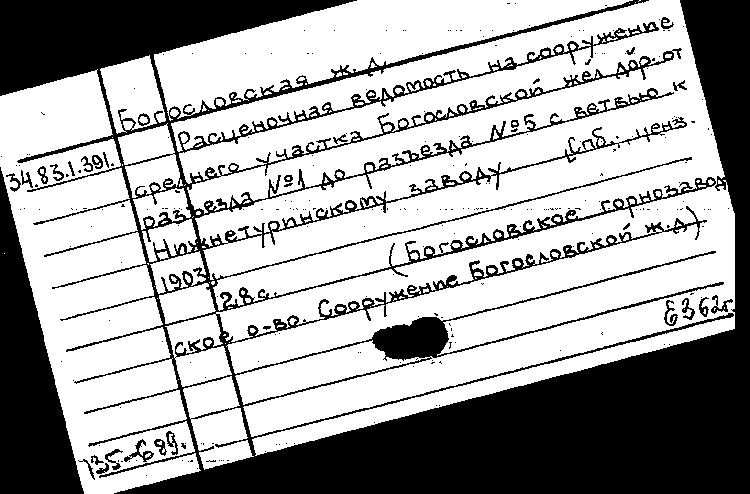 Богословская ж.д.
34.83.1.391.
Расценочная ведомость на сооружение
среднего участка Богословской жел дор. от
разъезда №1 до разъезда №5 с ветвью к
Нижнетуринскому заводу. [Спб., ценз.
1903г.
28 с. (Богословское горнозавод
ское о-во. Сооружение Богословской ж.д)
Е362г.
135-689.